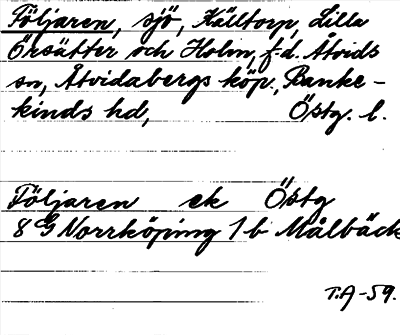 Följaren, sjö, Källtorp, Lilla
Örsätter och Holm, f.d. Åtvids
sn, Åtvidabergs köp., Banke-
kinds hd, Östg. l.
Följaren ek Östg
8 G Norrköping 1 b Målbäck
T.A-59.